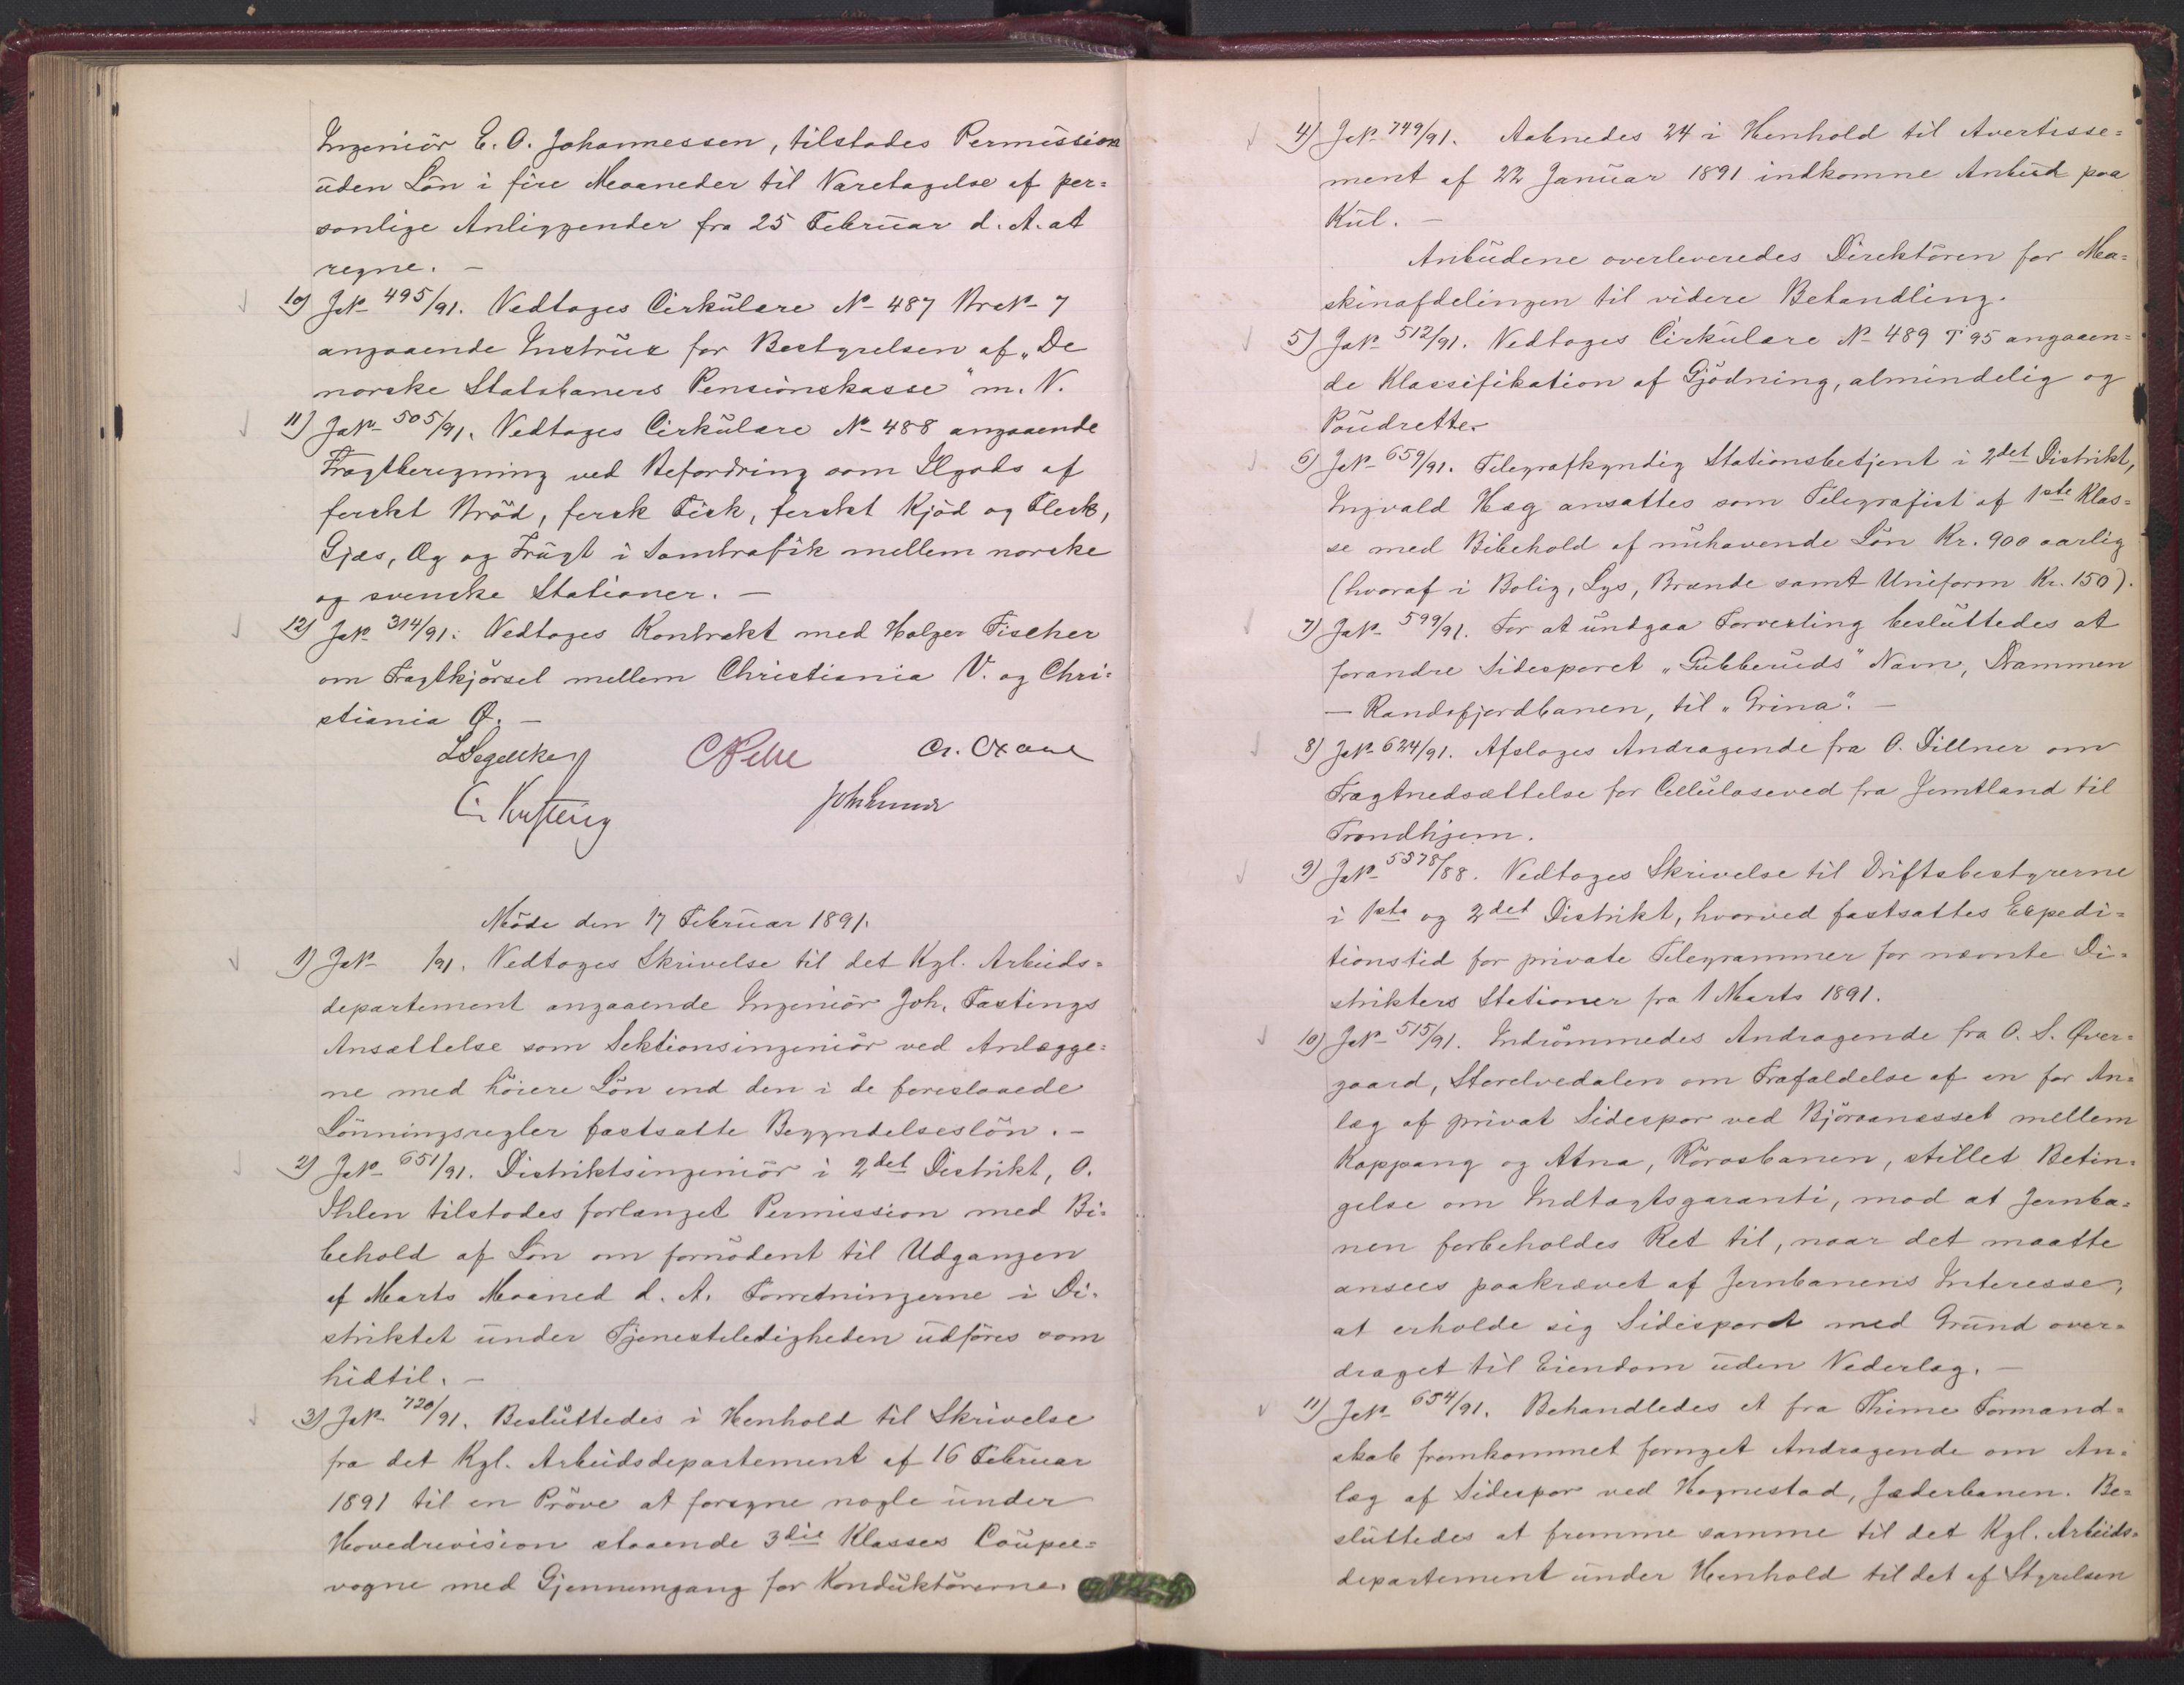 Ingeniör E. O. Johannessen, tilstodes Permission
uden Lön i fire Maaneder til Varetagelse af per=
sonlige Anliggender fra 25 Februar d. A. at
regne. —
10) JNo 495/91. Vedtoges Cirkulære No 487 No 7
angaaende Instrux for Bestyrelsen af „De
norske Statsbaners Pensionskasse" m. V.
11) JNo 505/91. Vedtoges Cirkulære No 488 angaaende
Fragtberegning ved Befordring som Ilgods af
ferskt Bröd, fersk Fisk, ferskt Kjöd og Flesk,
Gjæs, Æg og Frugt i Samtrafik mellem norske
og svenske Stationer. —
12) JNo 314/91. Vedtoges Kontrakt med Holger Fischer
om Fragtkjörsel mellem Christiania V. og Chri=
stiania Ø. —
Møde den 17 Februar 1891.
1) JNo /91. Vedtoges Skrivelse til det Kgl. Arbeids=
departement angaaende Ingeniör Joh. Fastings
Ansættelse som Sektionsingeniör ved Anlægge=
ne med höiere Lön end den i de foreslaaede
Lönningsregler fastsatte Begyndelseslön. —
2) JNo 651/91. Distriktsingeniör i 2det Distrikt, O.
Ihlen tilstodes forlanget Permission med Bi=
behold af Lön om fornödent til Udgangen
af Marts Maaned d. A. Forretningerne i Di=
striktet under Tjenesteledigheden udföres som
hidtil. —
3) JNo 720/91. Besluttedes i Henhold til Skrivelse
fra det Kgl. Arbeidsdepartement af 16 Februar
1891 til en Pröve at forsyne nogle under
Hovedrevision staaende 3die Klasses Coupee=
vogne med Gjennemgang for Konduktörerne.
4) JNo 749/91. Aabnedes 24 i Henhold til Avertisse=
ment af 22 Januar 1891 indkomne Anbud paa
Kul. —
Anbudene overleveredes Direktören for Ma=
skinafdelingen til videre Behandling.
5) JNo 512/91. Vedtoges Cirkulære No 489 T 95 angaaen=
de Klassifikation af Gjödning, almindelig og
Poudrette.
6) JNo 659/91. Telegrafkyndig Stationsbetjent i 2det Distrikt,
Ingvald Hæg ansattes som Telegrafist af 1ste Klas=
se med Bibehold af nuhavende Lön Kr. 900 aarlig
(hvoraf i Bolig, Lys, Brænde samt Uniform Kr. 150).
7) JNo 599/91. For at undgaa Forvexling besluttedes at
forandre Sidesporet „Gubberuds" Navn, Drammen
— Randsfjordbanen, til „Grina". —
8) JNo 624/91. Afsloges Andragende fra O. Dillner om
Fragtnedsættelse for Celluloseved fra Jemtland til
Trondhjem.
9) JNo 5578/88. Vedtoges Skrivelse til Driftsbestyrerne
i 1ste og 2det Distrikt, hvorved fastsattes Expedi=
tionstid for private Telegrammer for nævnte Di=
strikters Stationer fra 1 Marts 1891.
10) JNo 515/91. Indrömmedes Andragende fra O. S. Øver=
gaard, Storelvedalen om Frafaldelse af en for An=
læg af privat Sidespor ved Björaanæsset mellem
Koppang og Atna, Rörosbanen, stillet Betin=
gelse om Indtægtsgaranti, mod at Jernba=
nen forbeholdes Ret til, naar det maatte
ansees paakrævet af Jernbanens Interesse,
at erholde sig Sidesporet med Grund over=
draget til Eiendom uden Vederlag. —
11) JNo 654/91. Behandledes et fra Thime Formand=
skab fremkommet fornyet Andragende om An=
læg af Sidespor ved Hognestad, Jæderbanen. Be=
sluttedes at fremme samme til det Kgl. Arbeids=
departement under Henhold til det af Styrelsen